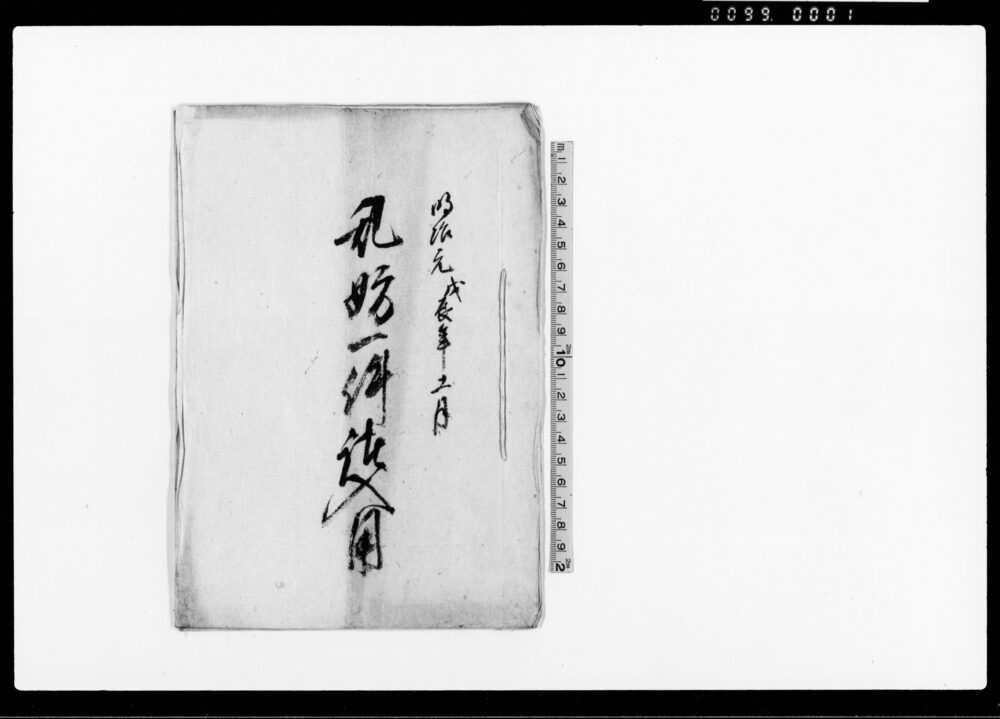 0099.0001
明治元戊辰年十一月
乱妨一件諸入用
m 1 2 3 4 5 6 7 8 9 10 1 2 3 4 5 6 7 8 9 2